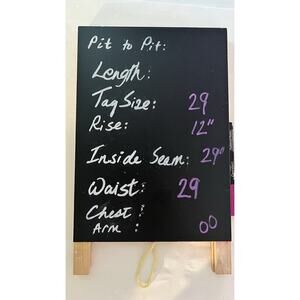 Pit to Pit:
Length:
Tag Size: 29
Rise: 12"
Inside Seam: 29"
Waist: 29
Chest:
Arm : 00